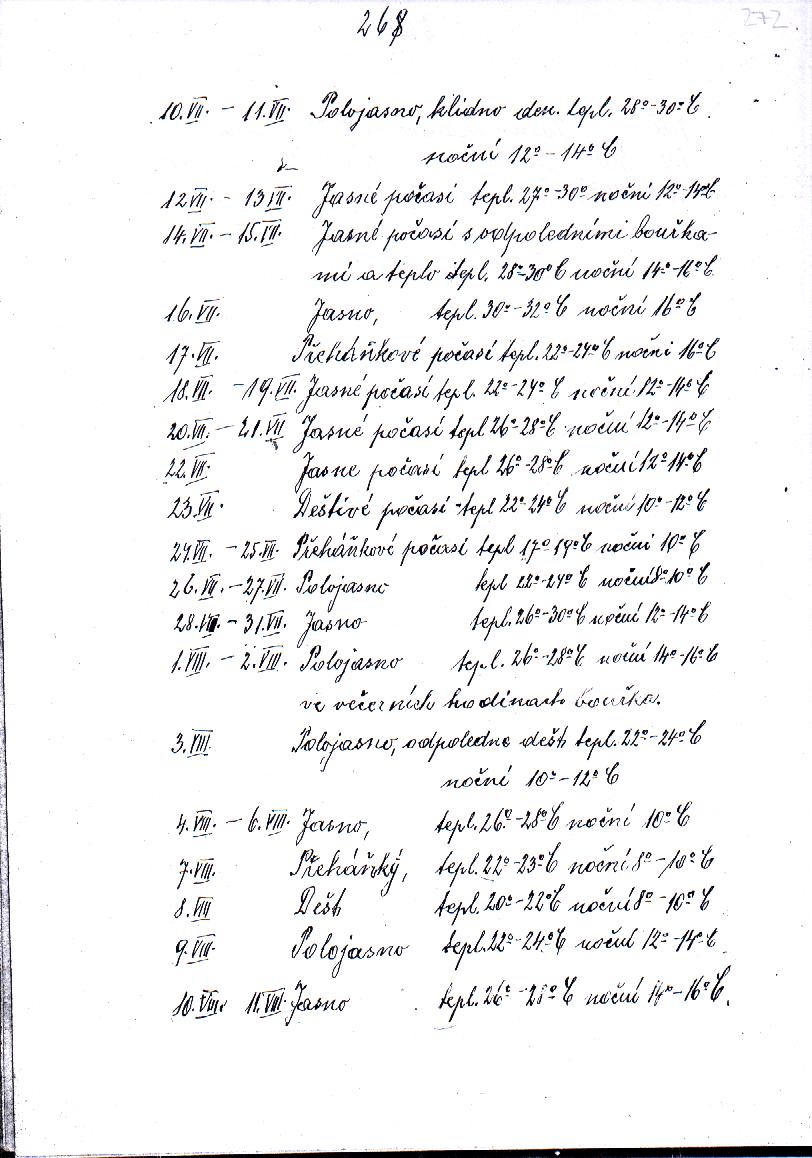 268
272
10.VII. - 11.VII. Polojasno, klidno den. tepl. 28°-30°C
noční 12°-14°C
12 VII. - 13 VII. Jasné počasí tepl. 27°-30° noční 12°-14°C
14.VII. - 15.VII. Jasné počasí s odpoledními bouřka-
mi a teplo tepl. 28°-30°C noční 14°-16°C
16.VII. Jasno, tepl. 30°-32°C noční 16°C
17.VII. Přeháňkové počasí tepl. 22°-24°C noční 16°C
18.VII. - 19.VII. Jasné počasí tepl. 22°-24°C noční 12°-14°C
20.VII. - 21.VII Jasné počasí tepl 26°-28°C noční 12°-14°C
22.VII. Jasne počasí tepl 26°-28°C noční 12°-14°C
23.VII. Deštivé počasí tepl 22°-24°C noční 10°-12°C
24.VII. - 25.VII. Přeháňkové počasí tepl 17°-19°C noční 10°C
26.VII. - 27.VII. Polojasno tepl 22°-24°C noční 8°-10°C
28.VII. - 31.VII. Jasno tepl. 26°-30°C noční 12°-14°C
1.VIII. - 2.VIII. Polojasno tepl. 26°-28°C noční 14°-16°C
ve večerních hodinach bouřka.
3.VIII. Polojasno, odpoledne dešt tepl. 22°-24°C
noční 10°-12°C
4.VIII. - 6.VIII. Jasno, tepl. 26°-28°C noční 10°C
7.VIII. Přeháňky, tepl. 22°-23°C noční 8°-10°C
8.VIII Dešt tepl. 20°-22°C noční 8°-10°C
9.VIII. Polojasno tepl. 22°-24°C noční 12°-14°C
10.VIII. 11.VIII. Jasno tepl. 26°-28°C noční 14°-16°C.